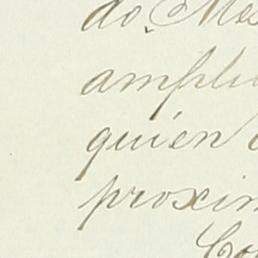 do. Mes
ampli
quién
proxim
Co